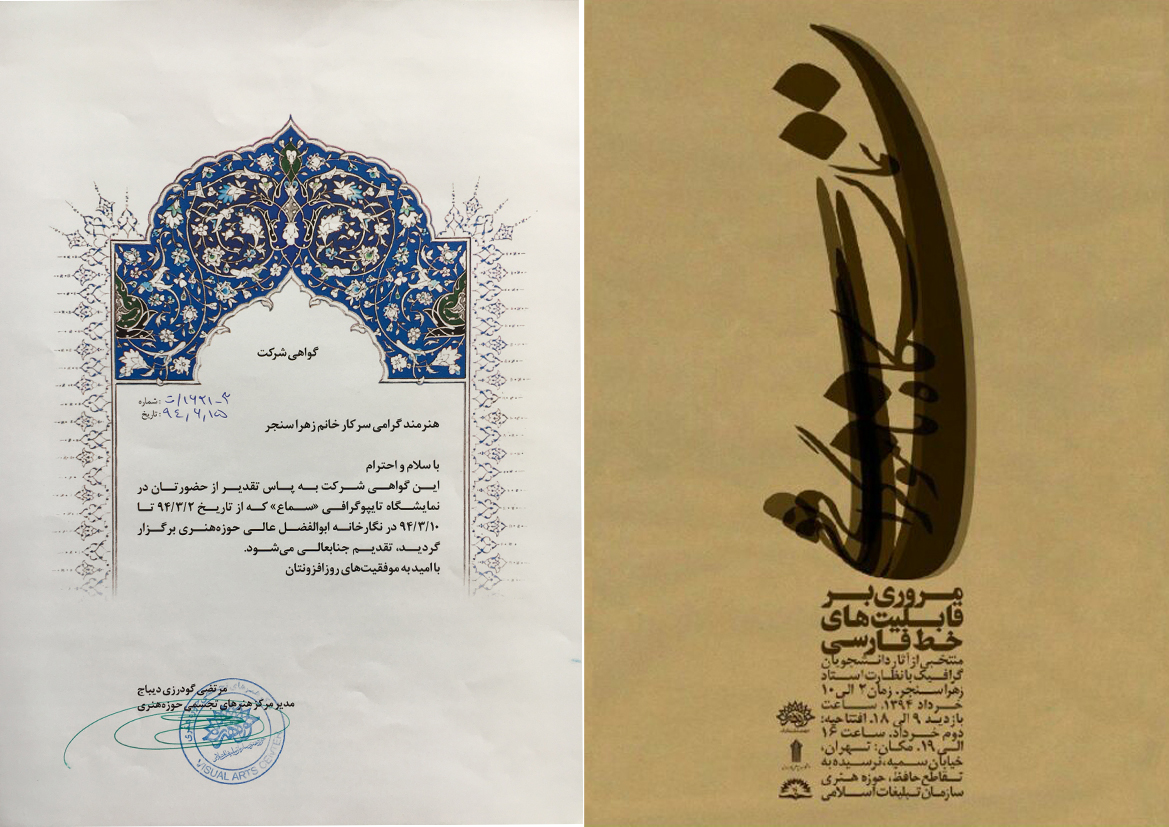 گواهی شرکت
شماره: ۱۶۲۱_۳/ت
تاریخ: ۹۴,۶,۱۵
هنرمند گرامی سرکار خانم زهرا سنجر
با سلام و احترام
این گواهی شرکت به پاس تقدیر از حضورتان در
نمایشگاه تایپوگرافی «سماع» که از تاریخ ۹۴/۳/۲ تا
۹۴/۳/۱۰ در نگارخانه ابوالفضل عالی حوزه‌هنری برگزار
گردید، تقدیم جنابعالی می‌شود.
با امید به موفقیت‌های روزافزونتان
مرتضی گودرزی دیباج
مدیر مرکز هنرهای تجسمی حوزه‌هنری
VISUAL ARTS CENTER
مروری بر
قابلیت‌های
خط فارسی
منتخبی از آثار دانشجویان
گرافیک با نظارت استاد
زهرا سنجر. زمان ۲ الی ۱۰
خرداد ۱۳۹۴. ساعت
بازدید ۹ الی ۱۸. افتتاحیه:
دوم خرداد. ساعت ۱۶
الی ۱۹. مکان: تهران،
خیابان سمیه، نرسیده به
تقاطع حافظ، حوزه هنری
سازمان تبلیغات اسلامی